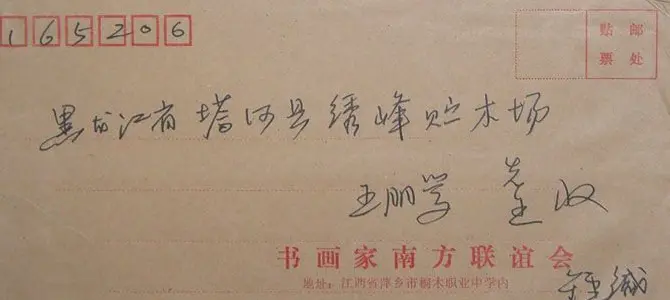 165206
贴邮
票处
黑龙江省塔河县绣峰贮木场
王朋学 先生 收
书画家南方联谊会
地址:江西省萍乡市桐木职业中学内
缄